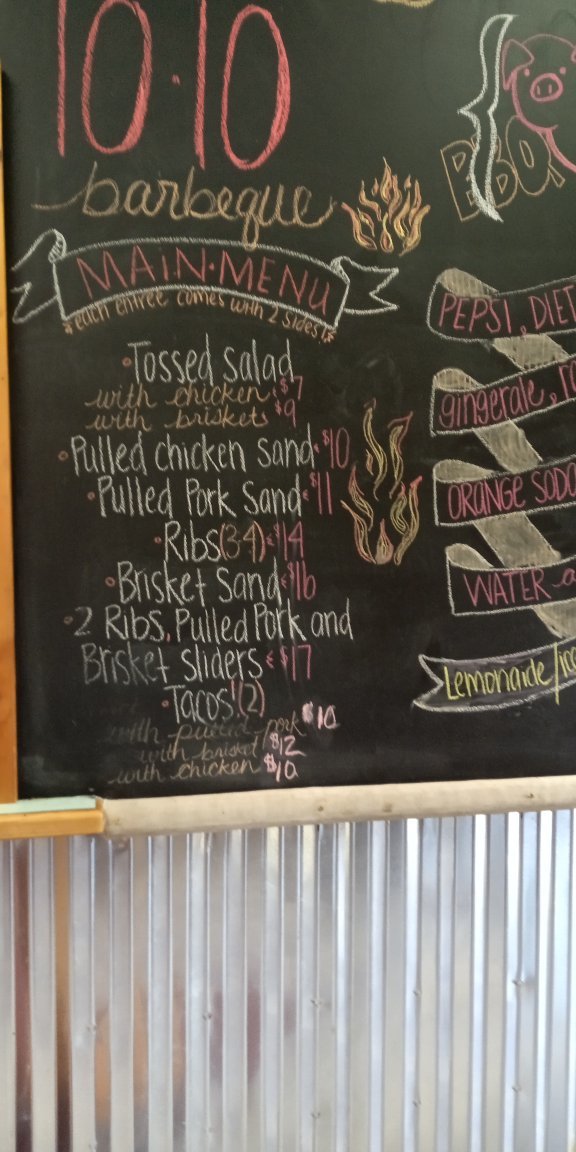 10·10
barbeque
MAIN·MENU
*each entree comes with 2 sides!*
•Tossed Salad
with chicken $7
with briskets $9
•Pulled chicken Sand $10
•Pulled Pork Sand $11
•Ribs(3-4) $14
•Brisket Sand $16
•2 Ribs, Pulled Pork and
Brisket sliders $17
•Tacos (2)
with pulled pork $10
with brisket $12
with chicken $10
BBQ
PEPSI, DIET
gingerale, ro
ORANGE SODA
WATER a
Lemonade/ice